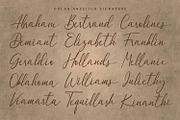 POLAR ANGELICA SIGNATURE
Abraham Bertrand Carolines
Demiant Elizabeth Franklin
Geraldin Hollands Mellanie
Oklahoma Williams Juliethy
Viamarta Tequillash Kinanthi